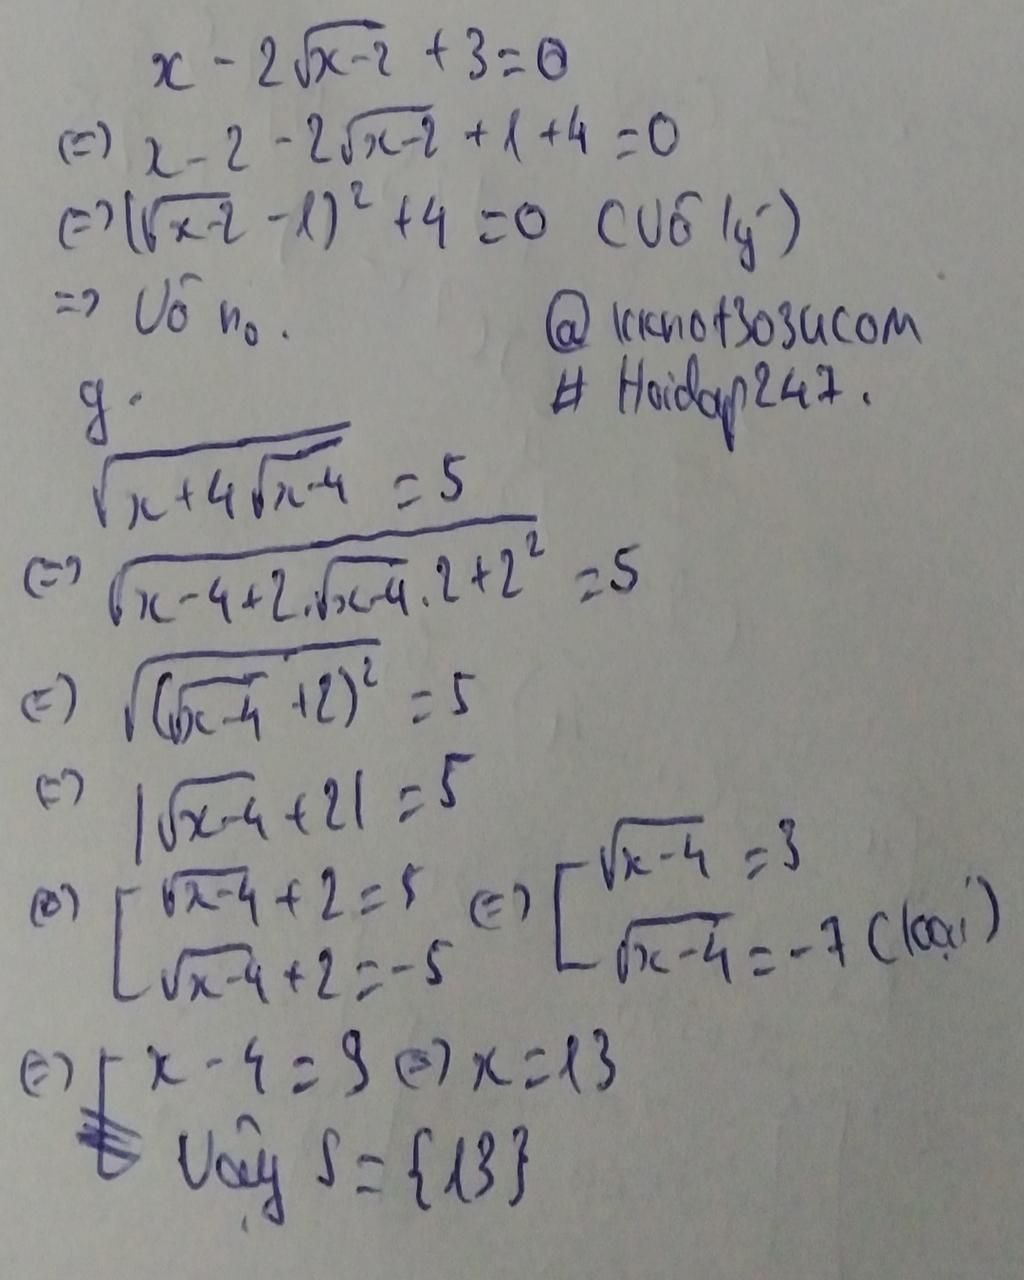 x - 2√(x-2) + 3 = 0
(=) x - 2 - 2√(x-2) + 1 + 4 = 0
(=) (√(x-2) - 1)² + 4 = 0 (Vô lý)
=> Vô n₀.
@ kkno+3o34com
# Hoidap247.
g.
√(x+4√(x-4)) = 5
(=) √(x-4+2.√(x-4).2+2²) = 5
(=) √((√(x-4) +2)²) = 5
(=) |√(x-4) + 2| = 5
(=) [ √(x-4) + 2 = 5 (=) [ √(x-4) = 3
√(x-4) + 2 = -5 √(x-4) = -7 (loại)
(=) [ x - 4 = 9 (=) x = 13
Vậy S = {13}